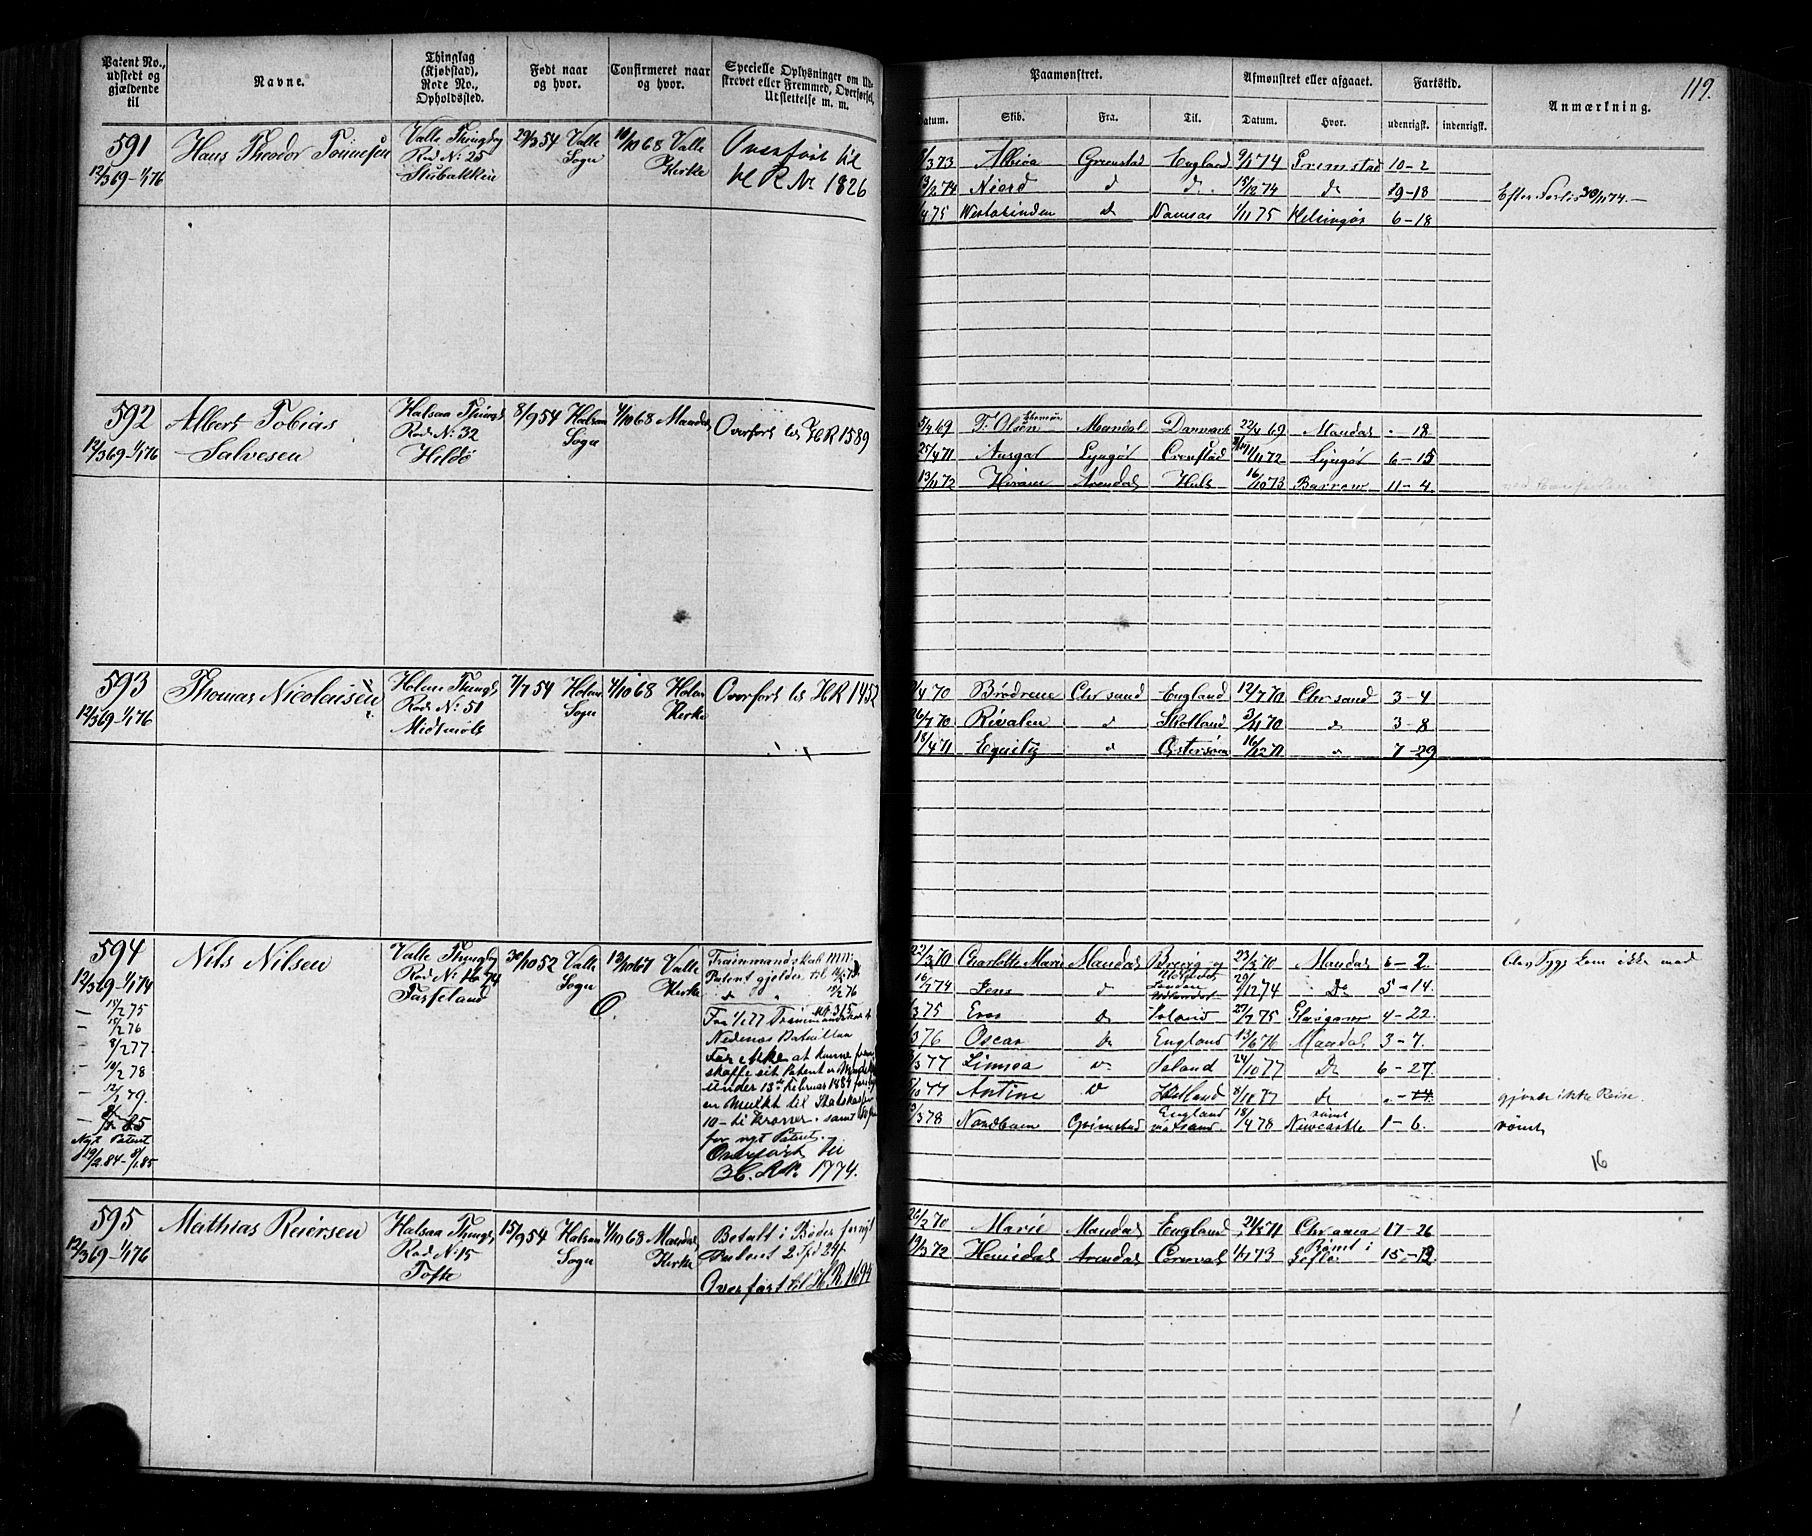 Patent No., udstedt og gjældende til
Navne.
Thinglag (Kjøbstad), Rode No., Opholdssted.
Født naar og hvor.
Confirmeret naar og hvor.
Specielle Oplysninger om Udskrevet eller Fremmed, Overførsel, Udslettelse m. m.
Paamønstret.
Datum.
Skib.
Fra.
Til.
Afmønstret eller afgaaet.
Datum.
Hvor.
Fartstid.
udenrigsk.
indenrigsk.
Anmærkning.
119.
591
12/3 69 – 1/1 76
Hans Theodor Tønnesen
Valle Thinglag
Rod No. 25
Stubakken
29/3 54 Valle Sogn
1/10 68 Valle Kirke
Overført til
H R Nr 1826
/3 73 Albion Grimstad England 9/1 74 Grimstad 10-2
13/2 74 Niord d d. 15/12 74 do 9-18 Efter Forlis 30/11 74.
/4 75 Vestalinden d Namsos 1/11 75 Helsingør 6-18
592
12/3 69 – 1/1 76
Albert Tobias
Salvesen
Halsaa Thingl
Rod No. 32
Hildø
8/9 54 Halsaa Sogn
4/10 68 Mandal
Overført til HR 1589
5/4 69 T. Olsen Mandal Danmark 22/4 69 Mandal - 18
25/4 71 Ansgar Lyngør Cronstad 11/11 72 Lyngør 6-15
13/11 72 Hiram Arendal Hull 16/10 73 Barrow 11-4
593
12/3 69 – 1/1 76
Thomas Nicolaisen
Holum Thingl
Rod No. 51
Midtbøls
7/7 54 Holum Sogn
4/10 68 Holum Kirke
Overført til HR 1452
/4 70 Brødrene Chrsand England 12/7 70 Chrsand 3-4
26/7 70 Rivalen d Skotland 3/11 70 d 3-8
18/4 71 Equity d Østersøen 16/12 71 d 7-29
594
12/3 69 – 1/1 74
– 15/2 75
– 15/2 76
– 8/2 77
– 14/2 78
– 12/2 79
Nyt Patent
19/2 84 – 8/1 85
Nils Nilsen
Valle Thingl
Rod No. 74
Tasseland
30/10 52 Valle Sogn
13/10 67 Valle Kirke
Trainmandskab
Patent gjelder til
Fra 1/1 77 Trainmandskab
Nedenes Batallion
For ikke at kunne frem
skaffe sit Patent
under 13de Februar 1884
en Mulkt til Statskassen
10 – ti Kroner – samt
for nyt Patent.
Overført til
H. R. Nr. 1774.
22/3 70 Charlotte Marie Mandal 23/5 70 Mandal 6-2 Chr Sygs kom ikke med
16/7 74 Jens d London 29/12 74 Do 5-14
/3 75 d Island 27/7 75 Glasgow 4-22
/3 76 Oscar Do England 13/6 76 Mandal 3-7
/3 77 Linnea d Island 24/10 77 Do 6-27
/10 77 Antine d Holland 8/10 77 do gjorde ikke Reise
/3 78 Nordhavn Grimstad England 18/4 78 rømt Newcastle 1-6 rømt
16
595
12/3 69 – 1/1 76
Mathias Reiersen
Halsaa Thingl
Rod No. 15
Tofte
15/9 54 Halsaa Sogn
4/10 68 Mandal Kirke
Betalt i Bøder for nyt
Patent 2 Spd 24 s
Overført til H. R. 1694
26/2 70 Marie Mandal England 21/5 71 Chrania 17-26
19/3 72 Hemidal Arendal Cornval 1/7 73 Rømt i Gefle 15-12